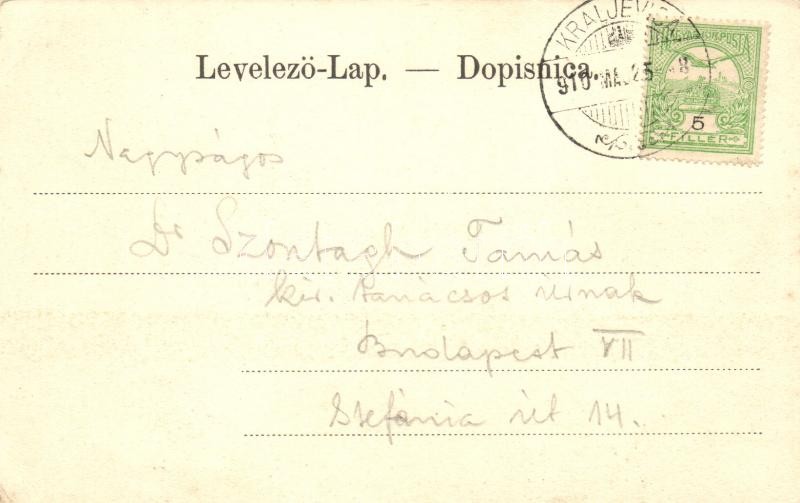 KRALJEVICA
Levelező-Lap. — Dopisnica.
910 MÁJ. 25
MAGYAR KIR. POSTA
5
FILLÉR
Nagyságos
Dr Szontagh Tamás
kir. tanácsos úrnak
Budapest VII
Stefánia út 14.